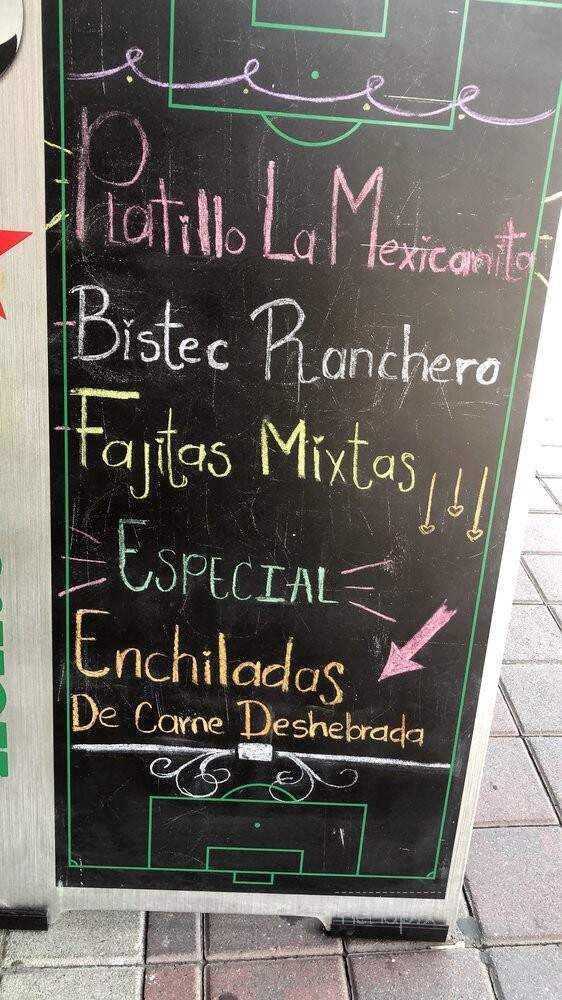 Platillo La Mexicanita
Bistec Ranchero
Fajitas Mixtas
ESPECIAL
Enchiladas
De Carne Deshebrada